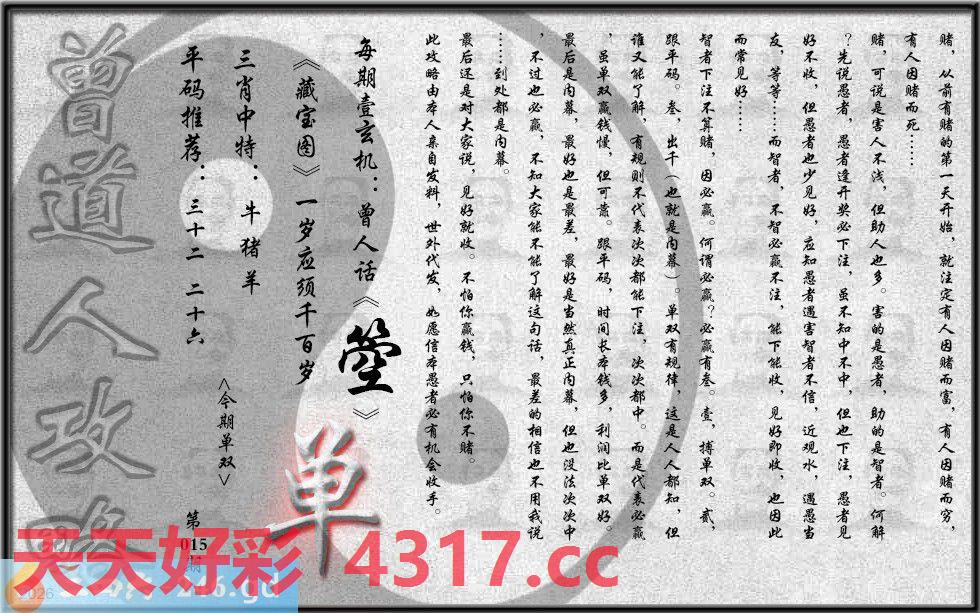 赌，从前有赌的第一天开始，就注定有人因赌而富，有人因赌而穷，
有人因赌而死……
赌，可说是害人不浅，但助人也多。害的是愚者，助的是智者。何解
？先说愚者，愚者逢开奖必下注，虽不知中不中，但也下注，愚者见
好不收，但愚者也少见好，应知愚者遇害智者不信，近观水，遇愚当
友，等等……而智者，不智必赢不注，能下能收，见好即收，也因此
而常见好……
智者下注不算赌，因必赢。何谓必赢？必赢有叁。壹，搏单双。贰，
跟平码。叁，出千（也就是内幕）。单双有规律，这是人人都知，但
谁又能了解，有规则不代表次次都能下注，次次都中。而是代表必赢
，虽单双赢钱慢，但可靠。跟平码，时间长本钱多，利润比单双好。
最后是内幕，最好也是最差，最好是当然真正内幕，但也没法次次中
，不过也必赢，不知大家能不能了解这句话，最差的相信也不用我说
……到处都是内幕。
最后还是对大家说，见好就收。不怕你赢钱，只怕你不赌。
此攻略由本人亲自发料，世外代发，如愿信本愚者必有机会收手。
每期壹玄机：曾人话《箜》
《藏宝图》一岁应须千百岁
单
三肖中特：牛 猪 羊
<今期单双>
平码推荐：三十二 二十六
第
015
期
曾道人攻略
天天好彩 4317.cc
2026